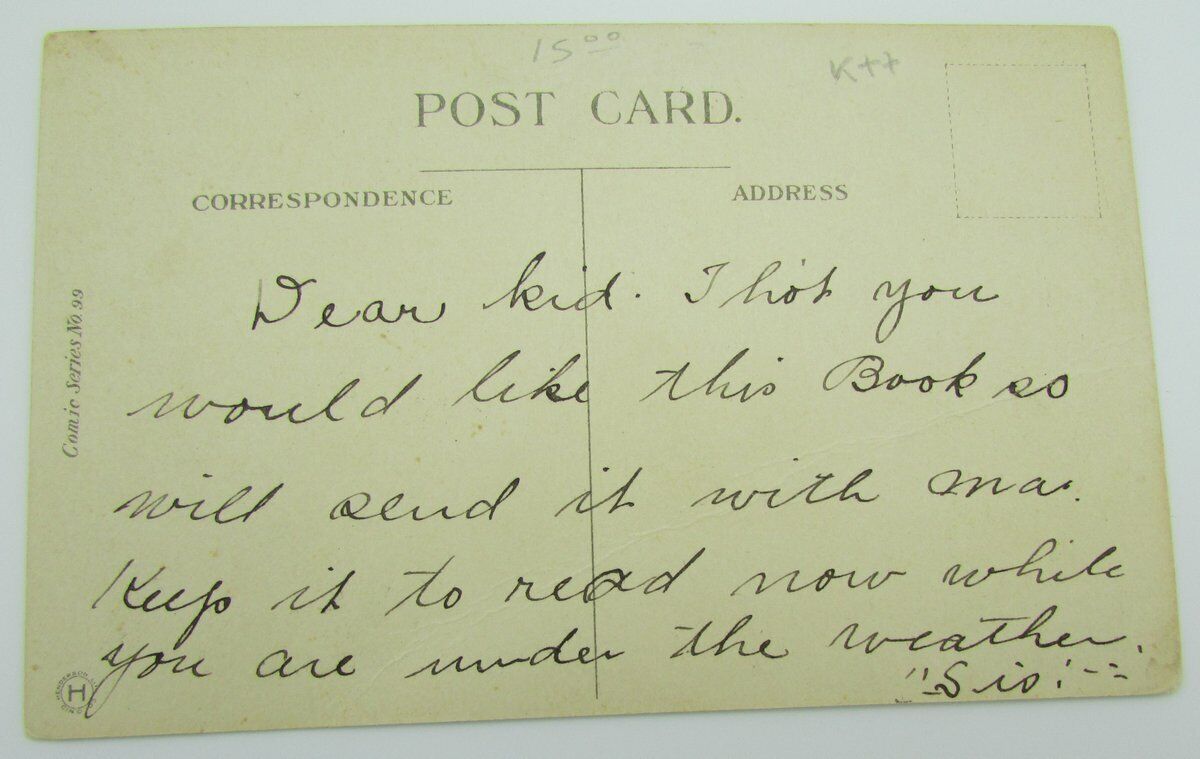 15 00
K++
POST CARD.
CORRESPONDENCE
ADDRESS
Comic Series No. 99
Dear kid. I hot you
would like this Book so
will send it with ma.
Keep it to read now while
you are under the weather.
"Sis."
H